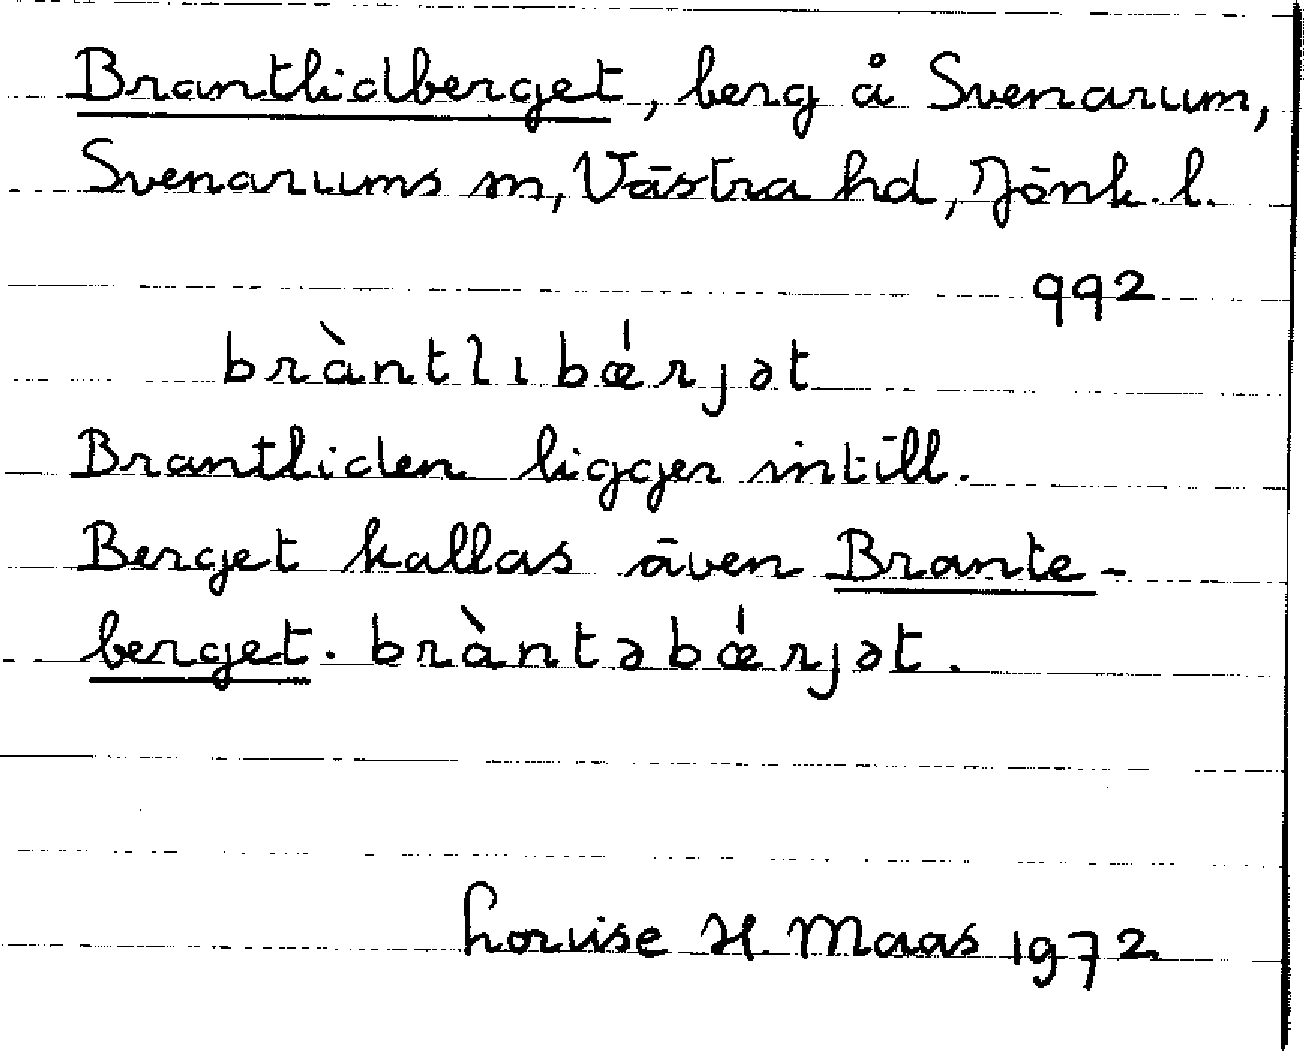 Brantlidberget, berg å Svenarum,
Svenarums sn, Västra hd, Jönk. l.
992
bràntlıbǿrjət
Brantliden ligger intill.
Berget kallas även Brante-
berget. bràntəbǿrjət.
Louise H. Maas 1972